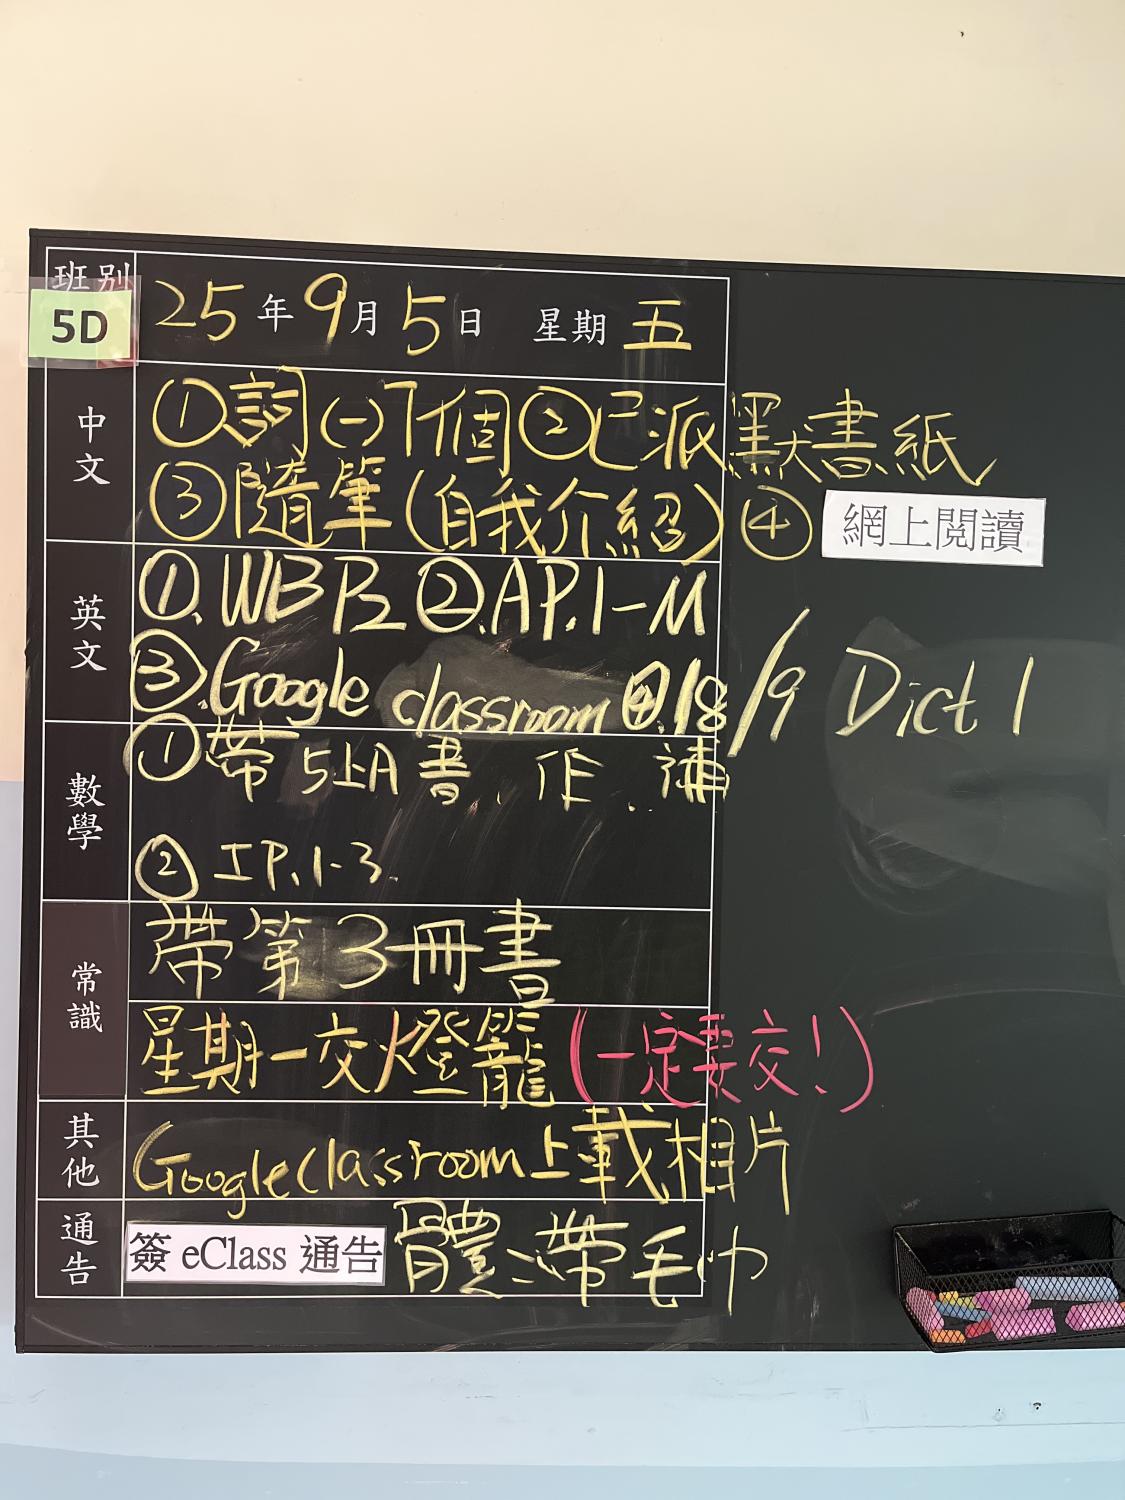 班別
5D
25年9月5日 星期五
中文
①詞(一)7個②已派默書紙
③隨筆(自我介紹)④網上閱讀
英文
①.WB P2 ②.AP.1-M
③.Google classroom ④.18/9 Dict 1
數學
①帶5上A書、作、補
②IP.1-3.
常識
帶第3冊書
星期一交火燈籠(一定要交!)
其他
Google classroom上載相片
通告
簽 eClass 通告 體:帶毛巾